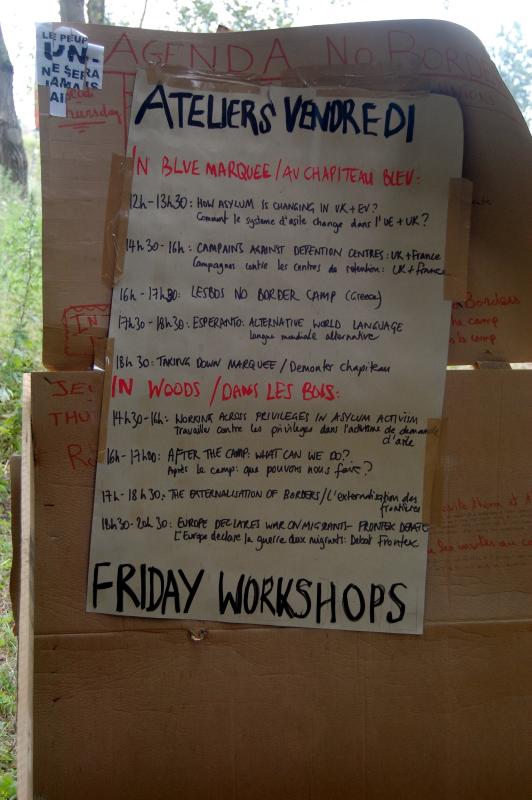 AGENDA NO BORDER
LE PEUP
UNI
NE SERA
JAMAIS
Thursday
ATELIERS VENDREDI
IN BLUE MARQUEE / AU CHAPITEAU BLEU:
12h - 13h30: HOW ASYLUM IS CHANGING IN UK + EU?
Comment le systeme d'asile change dans l'UE + UK?
14h30 - 16h: CAMPAINS AGAINST DETENTION CENTRES: UK + France
Campagnes contre les centres de retention: UK + France
16h - 17h30: LESBOS NO BORDER CAMP (Greece)
17h30 - 18h30: ESPERANTO: ALTERNATIVE WORLD LANGUAGE
langue mondiale alternative
18h30: TAKING DOWN MARQUEE / Demonter chapiteau
IN WOODS / DANS LES BOIS:
14h30 - 16h: WORKING ACROSS PRIVILEGES IN ASYLUM ACTIVISM
Travailler contre les privileges dans l'activisme de demande
d'asile
16h - 17h00: AFTER THE CAMP: WHAT CAN WE DO?
Après le camp: que pouvons nous faire?
17h - 18h30: THE EXTERNALISATION OF BORDERS / L'externalisation des
frontières
18h30 - 20h30: EUROPE DECLARES WAR ON MIGRANTS - FRONTEX DEBATE
L'Europe declare la guerre aux migrants: Debat Frontex
FRIDAY WORKSHOPS
Borders
camp
camp
IN
JEU
THU